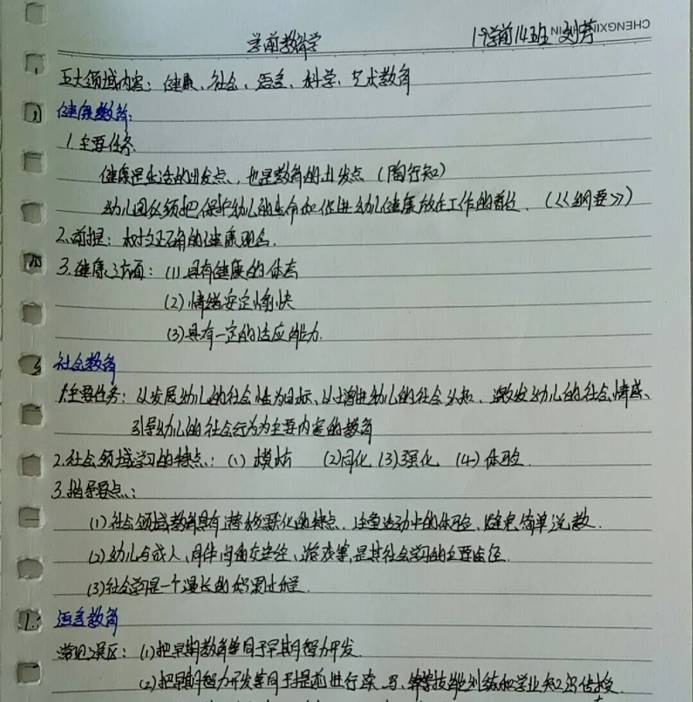 学前教育学
19学前14班 刘芳
CHENGXIN
五大领域内容：健康、社会、语言、科学、艺术教育
健康教育：
1.主要任务
健康是生活的出发点，也是教育的出发点（陶行知）
幼儿园必须把保护幼儿的生命和促进幼儿健康放在工作的首位．（《纲要》）
2.前提：树立正确的健康观念．
3.健康3方面：(1)具有健康的体态
(2)情绪安定愉快
(3)具有一定的适应能力．
社会教育
1.主要任务：以发展幼儿的社会性为目标、以增进幼儿的社会认知、激发幼儿的社会情感、
引导幼儿的社会行为为主要内容的教育
2.社会领域学习的特点：(1)模仿 (2)同化 (3)强化 (4)体验
3.指导要点：
(1)社会领域教育具有潜移默化的特点．注重活动中的体验，避免简单说教．
(2)幼儿与成人、同伴间的交往、游戏等，是其社会学习的主要途径．
(3)社会学习是一个漫长的积累过程．
语言教育
常见误区：(1)把早期教育等同于早期智力开发．
(2)把早期智力开发等同于提前进行读、写、算等技能训练和学业知识传授．